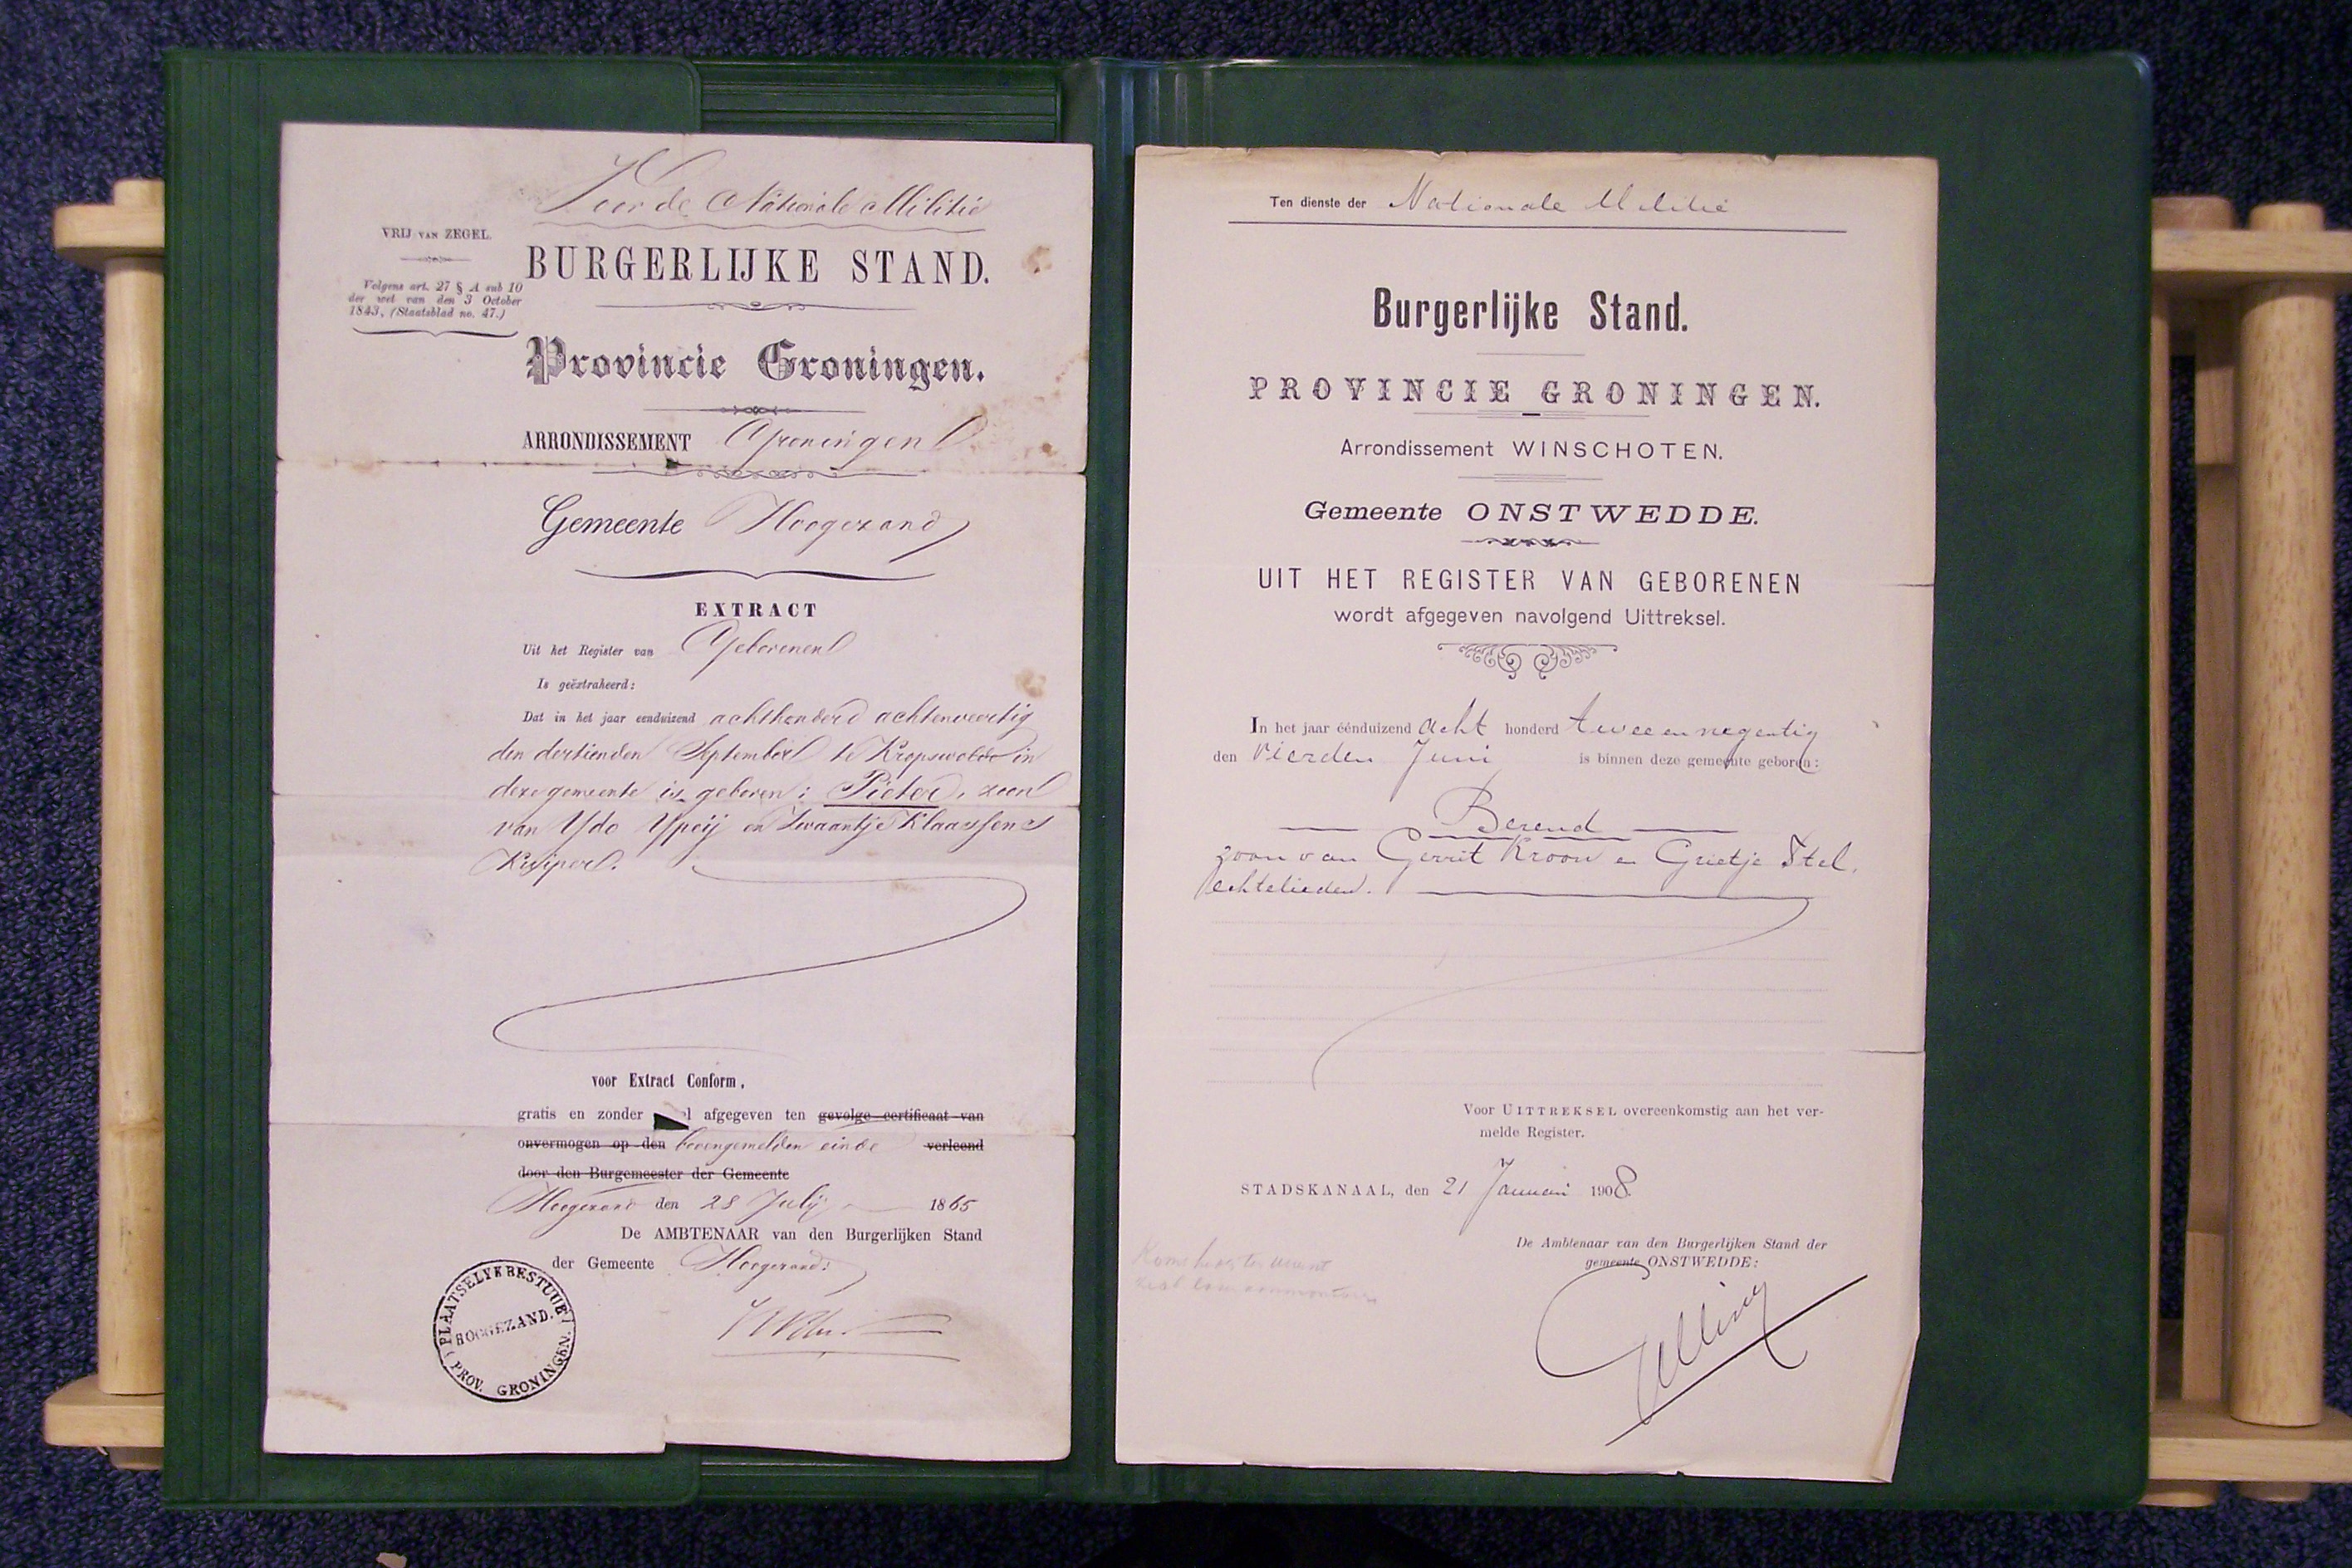 Voor de Nationale Militie
VRIJ VAN ZEGEL.
Volgens art. 27 § A sub 10
der wet van den 3 October
1843, (Staatsblad no. 47.)
BURGERLIJKE STAND.
Provincie Groningen.
ARRONDISSEMENT Groningen
Gemeente Hoogezand
EXTRACT
Uit het Register van Geborenen
Is geëxtraheerd:
Dat in het jaar eenduizend achthonderd achtenveertig
den dertienden September te Kropswolde in
deze gemeente is geboren: Pieter, zoon
van Ydo Ypeij en Zwaantje Klaassens
Kuiper.
voor Extract Conform,
gratis en zonder afgegeven ten gevolge certificaat van
onvermogen op den bovengemelden einde verleend
door den Burgemeester der Gemeente
Hoogezand den 28 Julij 1865
De AMBTENAAR van den Burgerlijken Stand
der Gemeente Hoogezand:
PLAATSELYK BESTUUR
HOOGEZAND.
PROV. GRONINGEN.
Ten dienste der Nationale Militie
Burgerlijke Stand.
PROVINCIE GRONINGEN.
Arrondissement WINSCHOTEN.
Gemeente ONSTWEDDE.
UIT HET REGISTER VAN GEBORENEN
wordt afgegeven navolgend Uittreksel.
In het jaar éénduizend acht honderd twee en negentig
den vierden Juni is binnen deze gemeente geboren:
Berend
zoon van Gerrit Kroon en Grietje Stel,
echtelieden.
Voor UITTREKSEL overeenkomstig aan het ver-
melde Register.
STADSKANAAL, den 21 Januari 1908.
De Ambtenaar van den Burgerlijken Stand der
gemeente ONSTWEDDE: